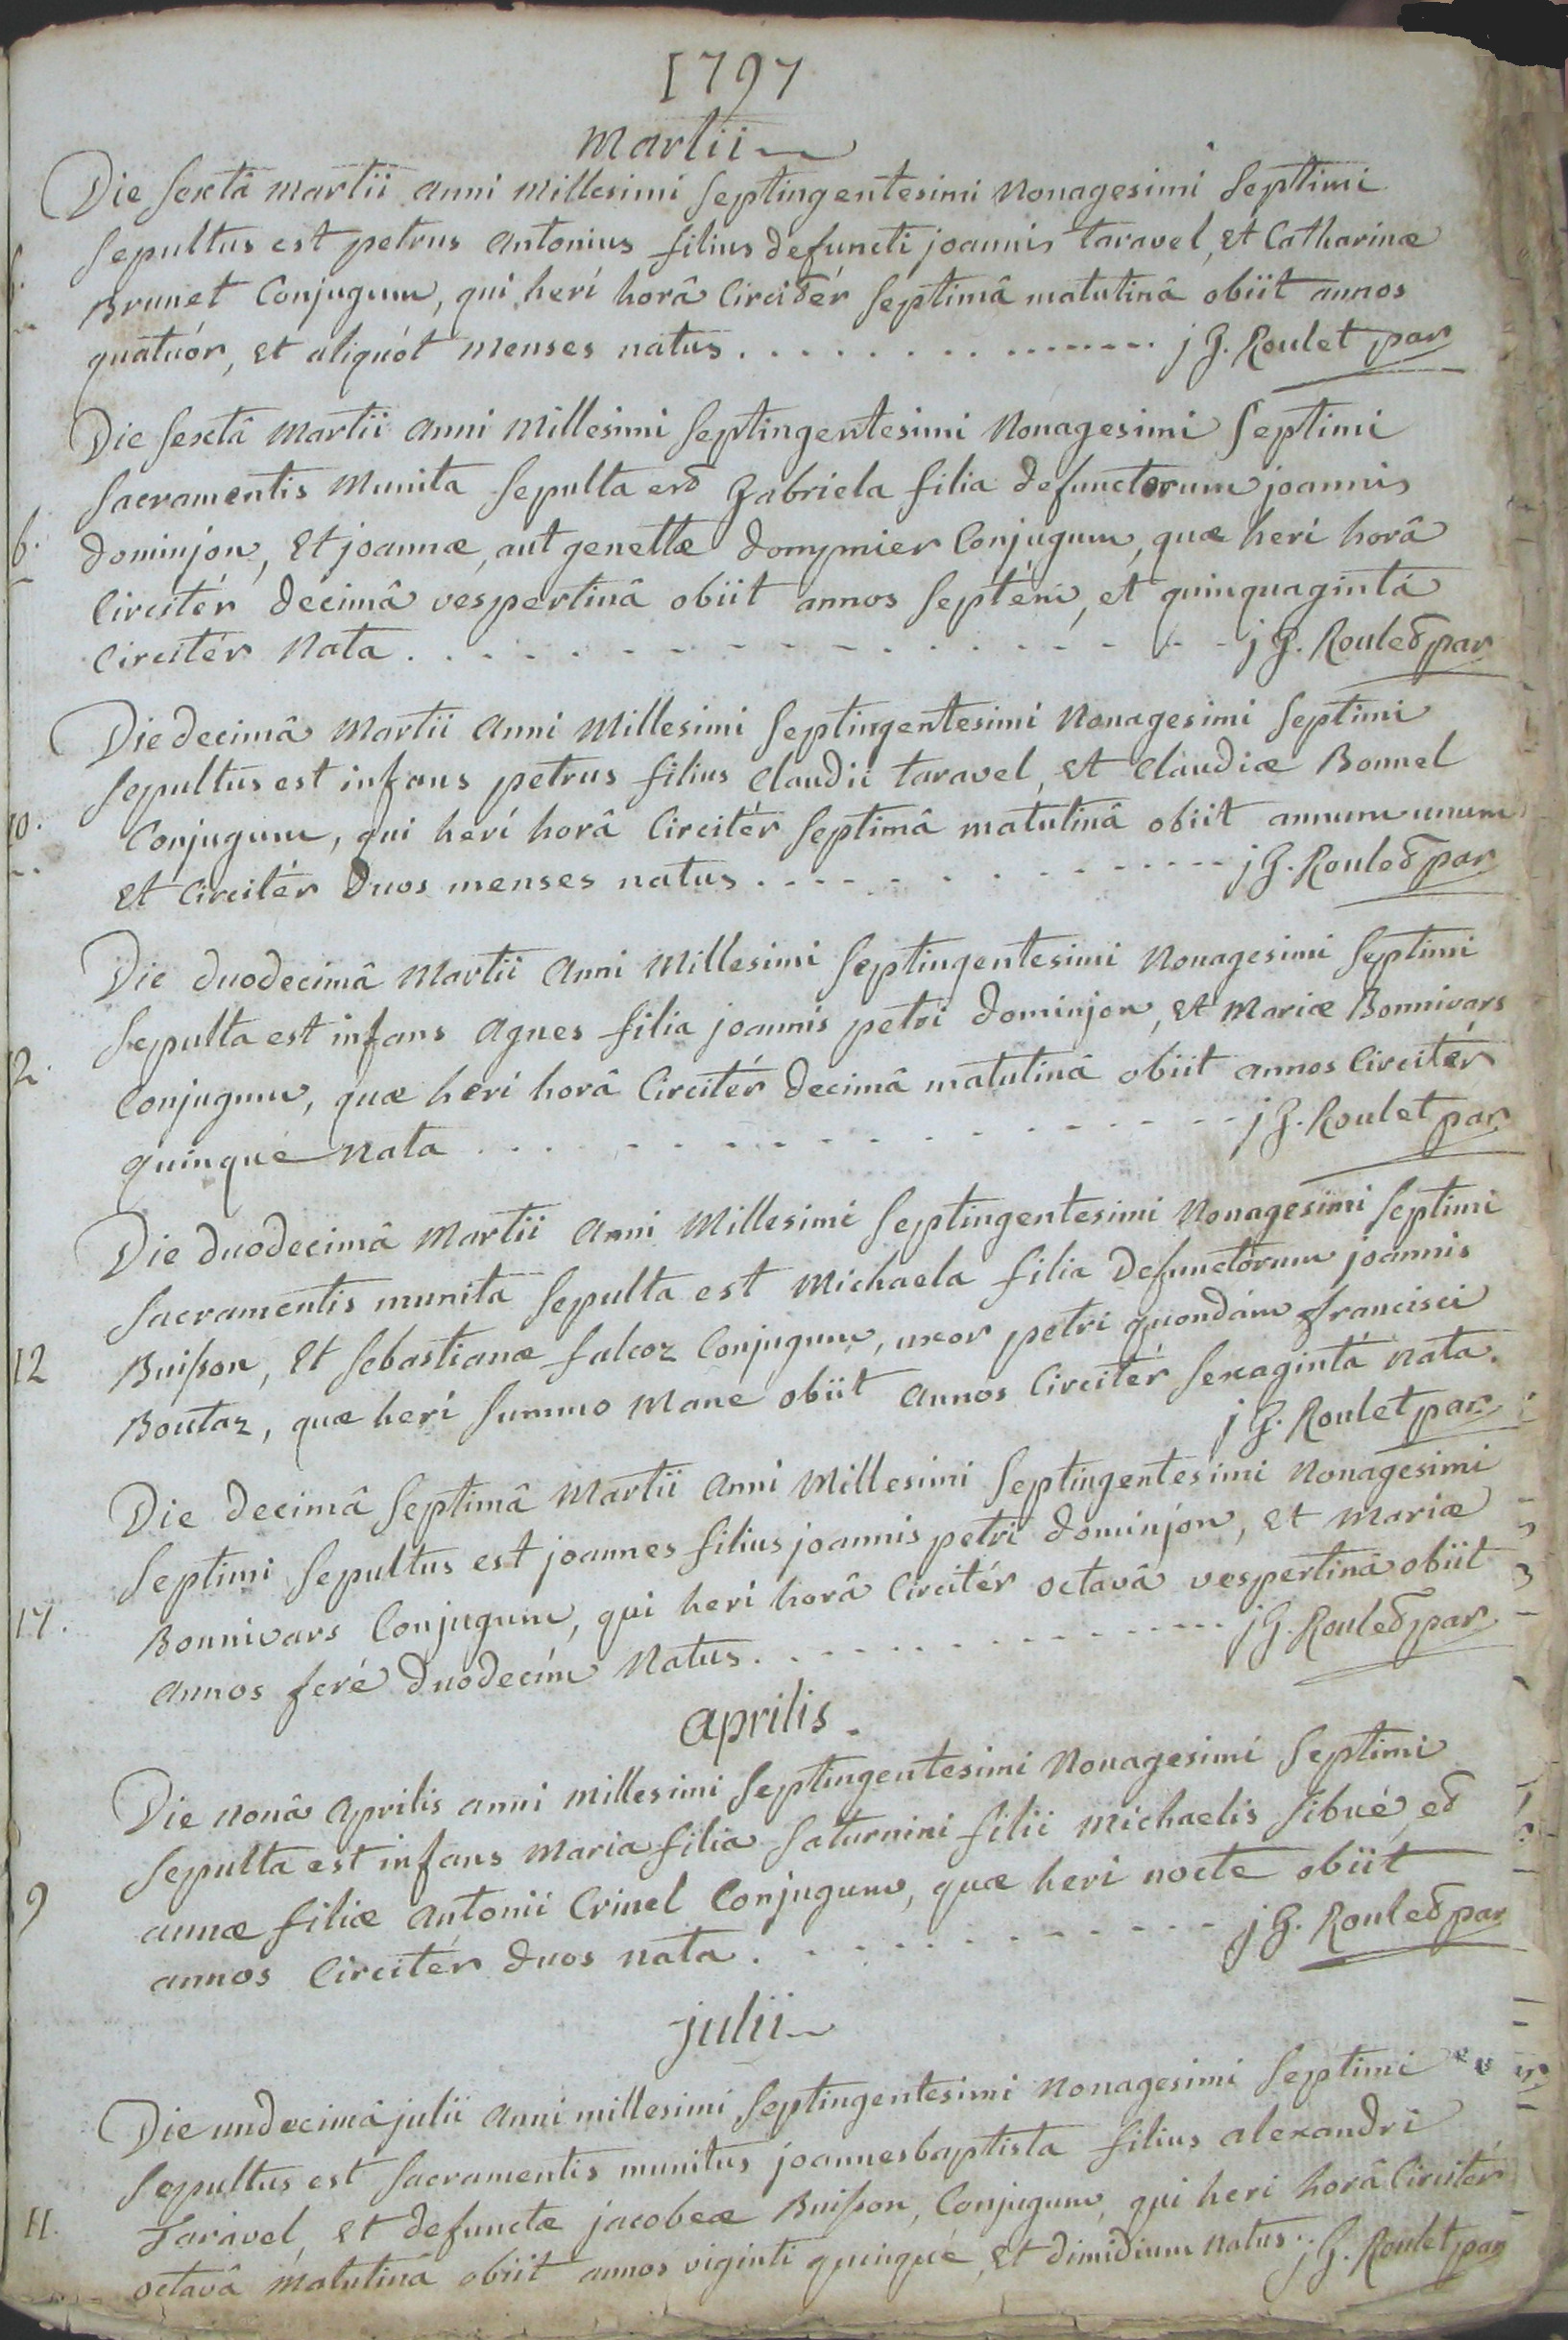 1797
Martii
Die sextâ martii anni millesimi septingentesimi nonagesimi septimi
sepultus est petrus antonius filius defuncti joannis taravel, et Catharinæ
Brunet Conjugum, qui herí horâ Circitér septimâ matutinâ obiit annos
quatuór, et aliquót menses natus . . . . . . . . . . . . . . . j G. Roulet par
Die sextâ martii anni Millesimi septingentesimi Nonagesimi septimi
6. sacramentis munita sepulta est gabriela filia defunctorum joannis
dominjon, Et joannæ, aut genettæ dompnier Conjugum, quæ herí horâ
Circitér décimâ vespertinâ obiit annos septém, et quinquagintá
Circitér Nata . . . . . . . . . . . . . . . j G. Roulet par
Die decimâ Martii Anni Millesimi septingentesimi Nonagesimi septimi
sepultus est infans petrus filius Claudii taravel, Et Claudiæ Bonnel
10. Conjugum, qui herí horâ Circitér septimâ matutinâ obiit annum unum
Et Circitér duos menses natus . . . . . . . . . . . . j G. Roulet par
Die duodecimâ Martii Anni Millesimi septingentesimi Nonagesimi septimi
sepulta est infans Agnes filia joannis petri dominjon, et Mariæ Bonnivars
12. Conjugum, quæ herí horâ Circitér decimâ matutinâ obiit annos Circitér
quinqué Nata . . . . . . . . . . . . . . . j G. Roulet par
Die duodecimâ Martii Anni Millesimi septingentesimi Nonagesimi septimi
sacramentis munita sepulta est Michaela filia defunctorum joannis
12 Buisson, Et sebastianæ falcoz Conjugum, uxor petri quondám francisci
Boutaz, quæ herí summo Mane obiit Annos Circitér sexagintá Nata.
j G. Roulet par
Die decimâ septimâ Martii Anni Millesimi septingentesimi Nonagesimi
septimi sepultus est joannes filius joannis petri dominjon, et Mariæ
17. Bonnivars Conjugum, qui herí horâ Circitér octavâ vespertinâ obiit
annos feré duodecím Natus . . . . . . . . . . . . j G. Roulet par
aprilis.
Die nonâ Aprilis anni millesimi septingentesimi Nonagesimi septimi
sepulta est infans Maria filia saturnini filii Michaelis sibué, et
9 annæ filiæ Antonii Crinel Conjugum, quæ herí nocte obiit
annos Circitér duos nata . . . . . . . . . . . . j G. Roulet par
julii
Die undecimâ julii Anni millesimi septingentesimi Nonagesimi septimi
sepultus est sacramentis munitus joannesbaptista filius alexandri
11. Taravel, et defunctæ jacobeæ Buisson, Conjugum, qui heri horâ Circitér
octavâ matutinâ obiit annos viginti quinqué, Et dimidium natus . . j G. Roulet par